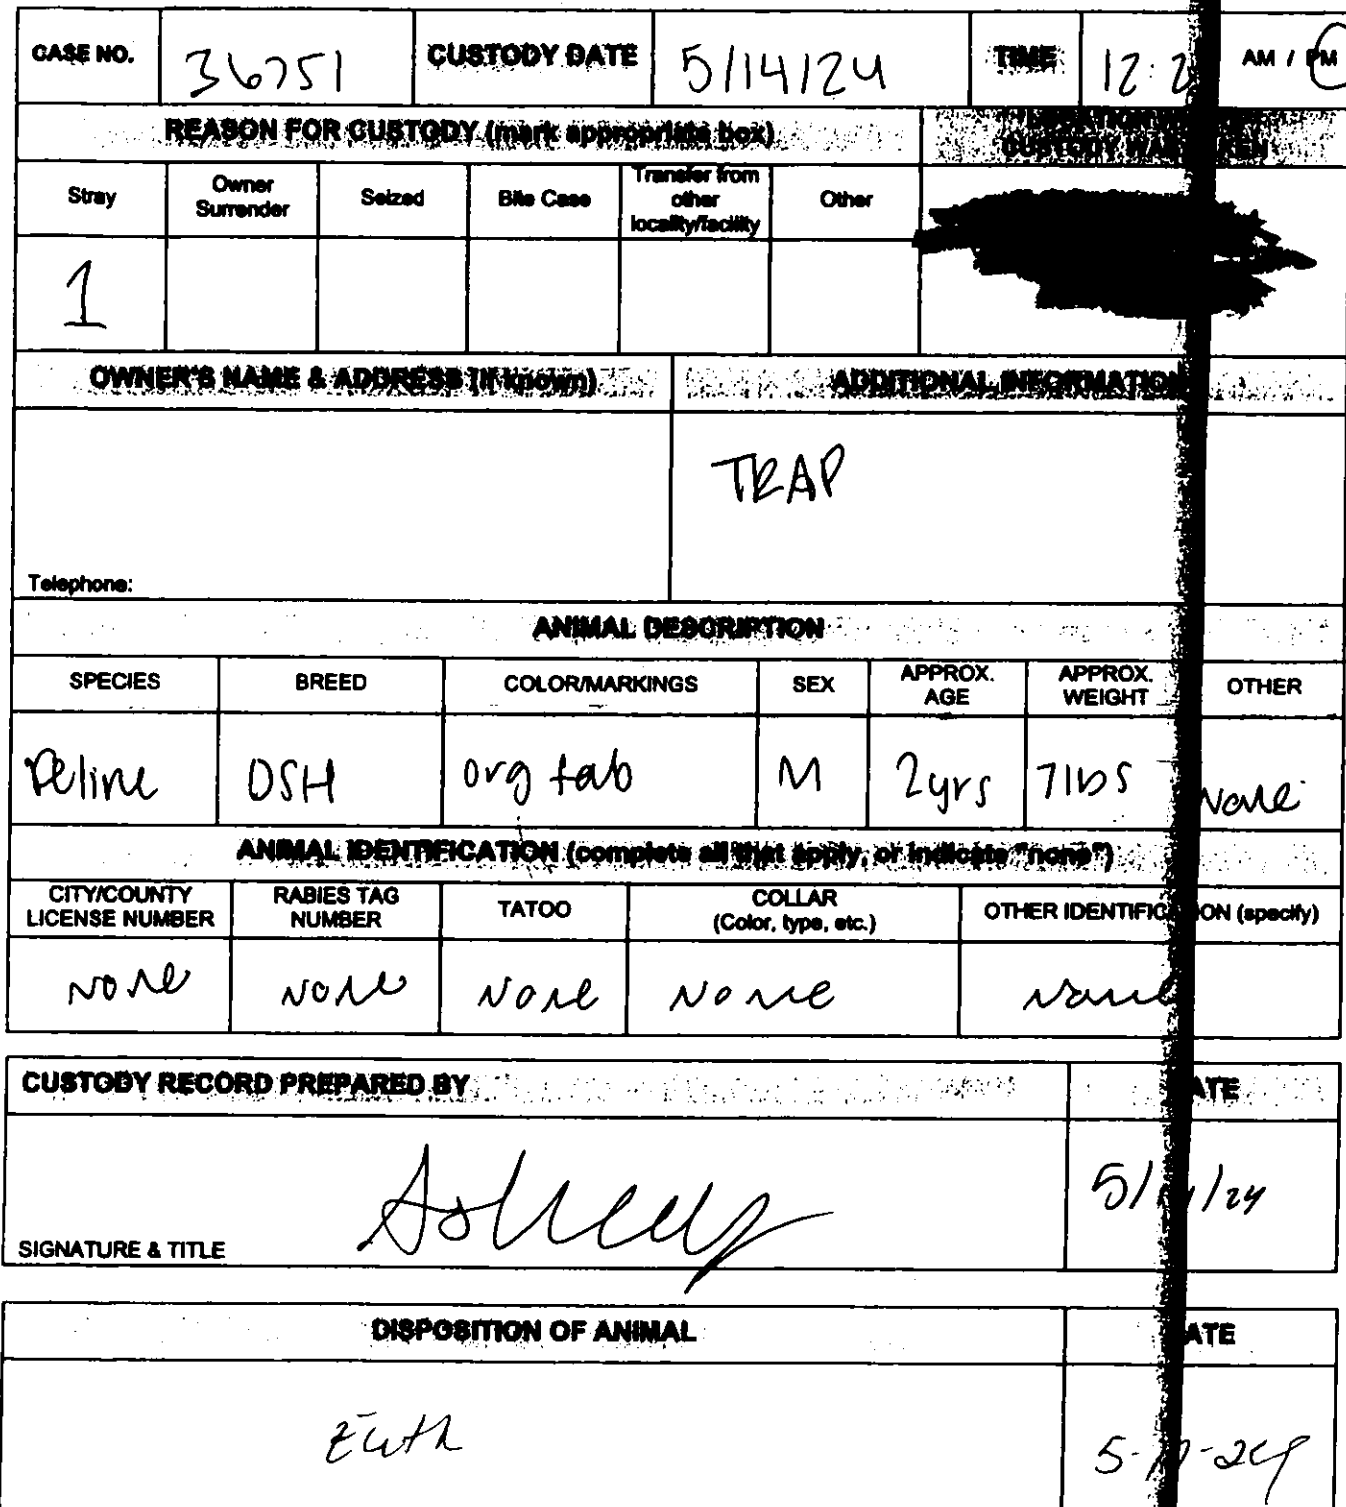 CASE NO. 36751 CUSTODY DATE 5/14/24 TIME 12:2 AM / PM
REASON FOR CUSTODY (mark appropriate box)
CUSTODY
Stray Owner Surrender Seized Bite Case Transfer from other locality/facility Other
1
OWNER'S NAME & ADDRESS (if known) ADDITIONAL INFORMATION
TRAP
Telephone:
ANIMAL DESCRIPTION
SPECIES BREED COLOR/MARKINGS SEX APPROX. AGE APPROX. WEIGHT OTHER
Feline DSH org tab M 2yrs 7lbs None
ANIMAL IDENTIFICATION (complete all that apply, or indicate "none")
CITY/COUNTY LICENSE NUMBER RABIES TAG NUMBER TATOO COLLAR (Color, type, etc.) OTHER IDENTIFICATION (specify)
None None None None None
CUSTODY RECORD PREPARED BY DATE
5/ /24
SIGNATURE & TITLE
DISPOSITION OF ANIMAL DATE
Euth 5- -24